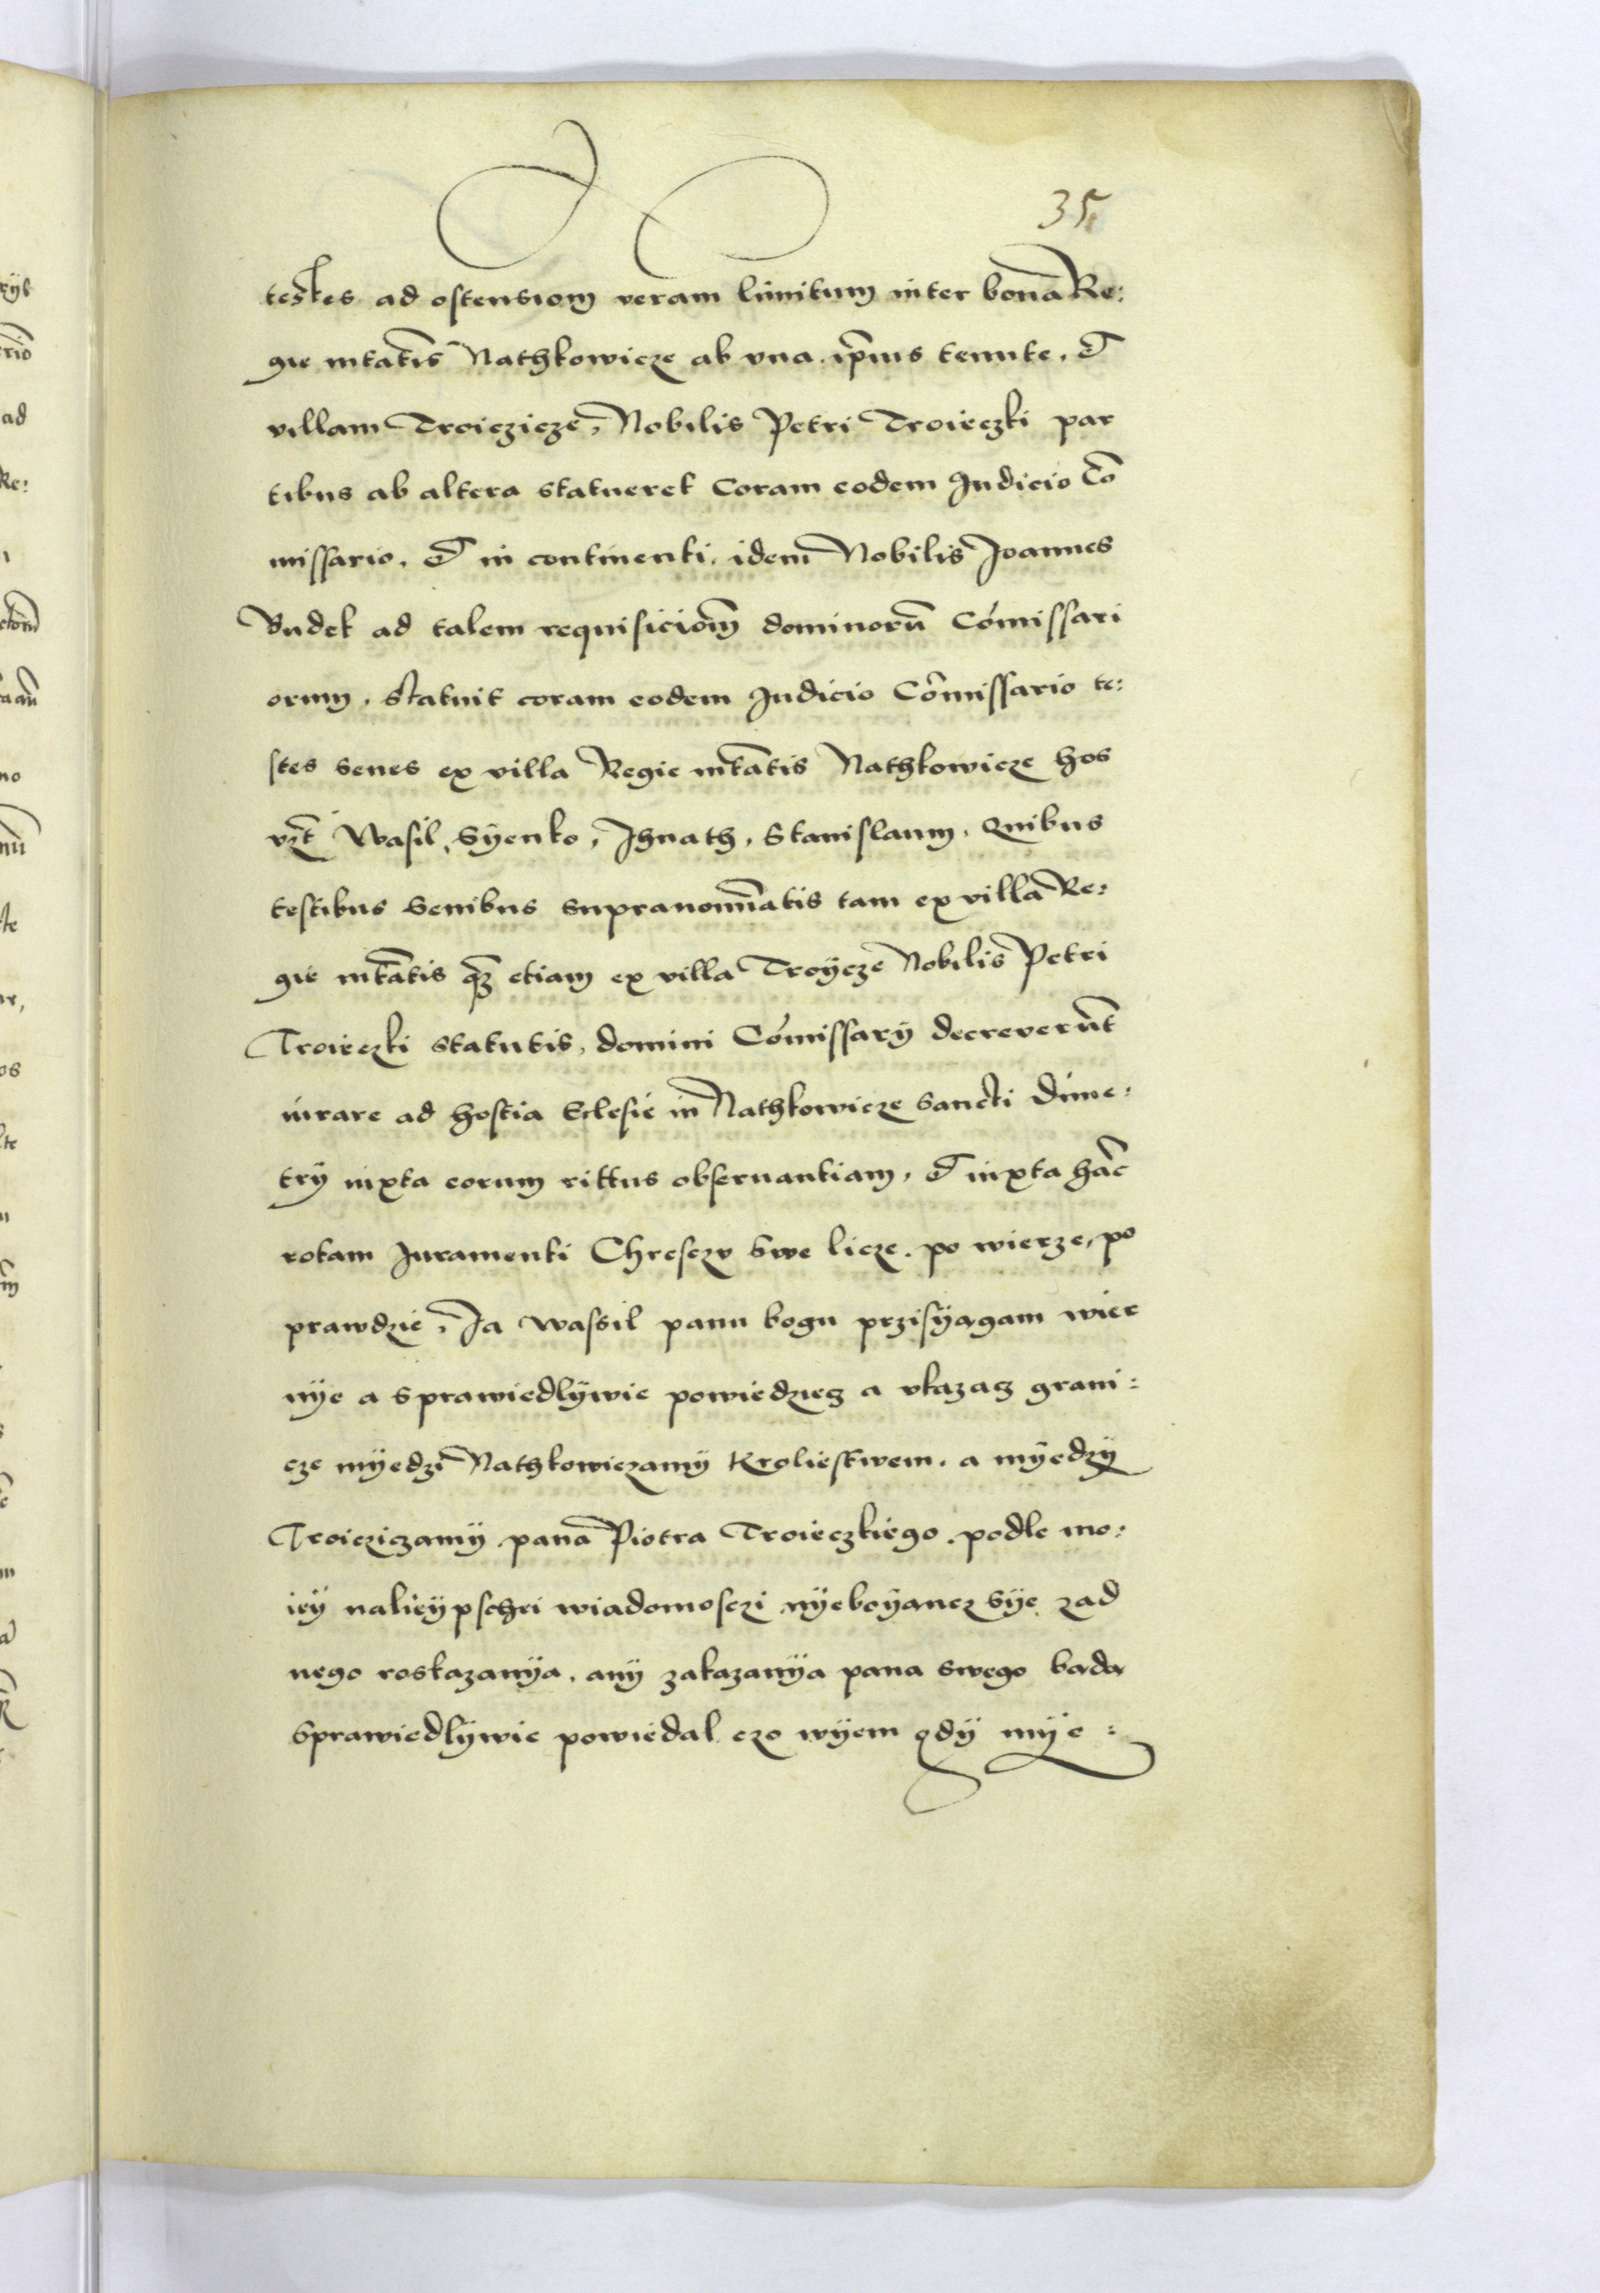 35
testes ad ostensiom veram limitum inter bona Re:
gie mtatis Nathkowicze ab vna ipsius tenute, et
villam Troiczicze, Nobilis Petri Troieczki par
tibus ab altera statueret Coram eodem Judicio Co
missario, et in continenti, idem Nobilis Joannes
Budek ad talem requisiciom dominoru Comissari
orum, statuit coram eodem Judicio Comissario te:
stes senes ex villa Regie mtatis Nathkowicze hos
vzt Wasil, Syenko, Ihnath, Stanislaum, Quibus
testibus Senibus supranominatis tam ex villa Re:
gie mtatis qz etiam ex villa Troycze Nobilis Petri
Troieczki statutis, domini Comissary decreverut
iurare ad hostia Eclesie in Nathkowicze Sancti Dime:
try iuxta eorum rittus obseruantiam, et iuxta hac
rotam Juramenti Chresczv Swe licze, po wierze, po
prawdzie, Ja Wassil panu bogu przisyagam wier
nye a sprawiedlywie powiedziecz a vkazacz grani:
cze myedzi Nathkowiczamy Krolieskwem, a myedzy
Troicziczamy pana Piotra Troieczkiego, podle mo:
iey nalieypschei wiadomosczi nyeboyancz Sye zad
nego roskazanya, any zakazanya pana swego bada
Sprawiedlywie powiedal czo wyem gdy mye: